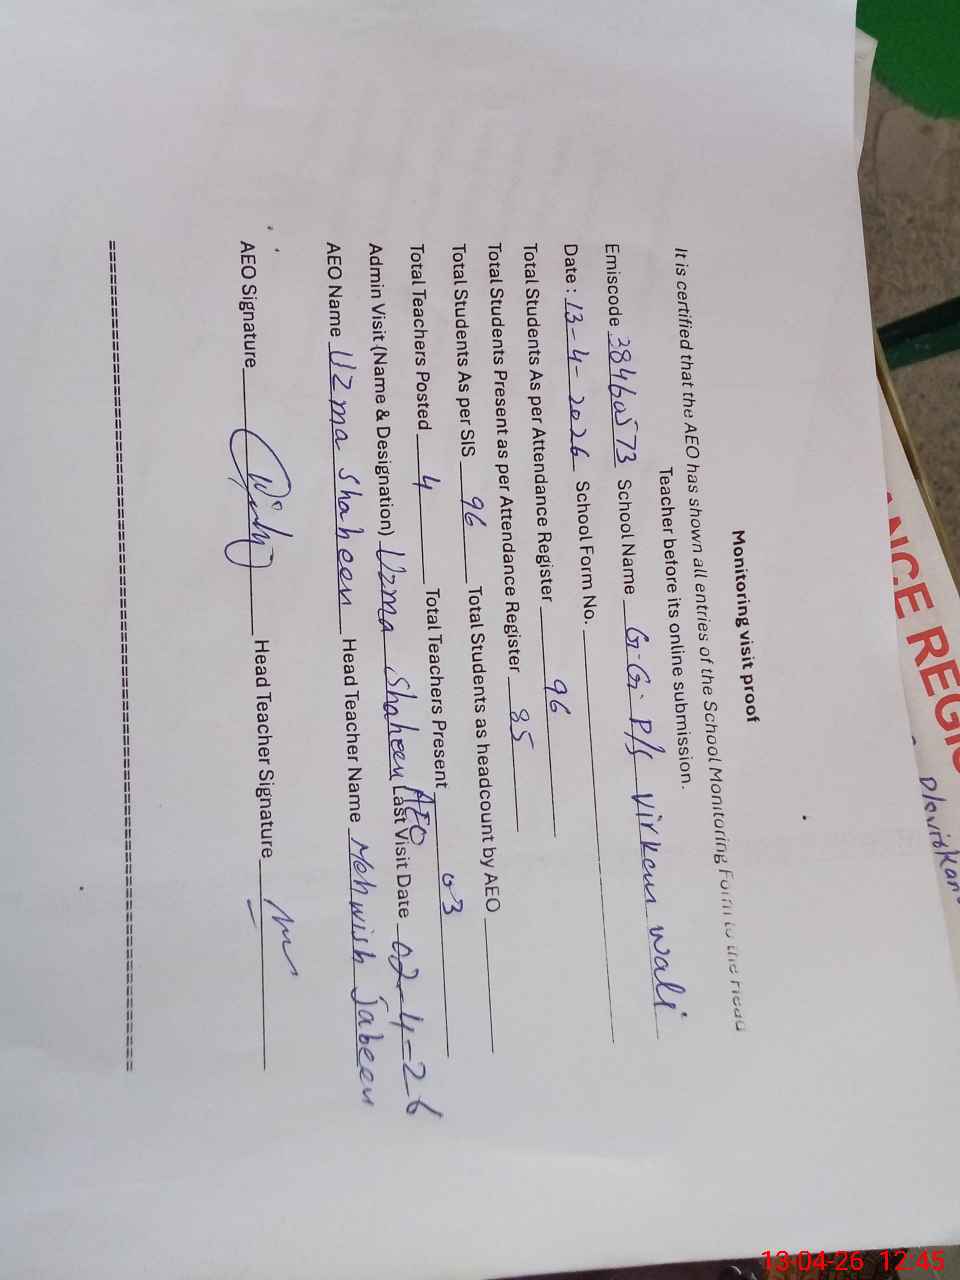 Monitoring visit proof
It is certified that the AEO has shown all entries of the School Monitoring Form to the Head
Teacher before its online submission.
Emiscode 38460573 School Name G.G. P/S Virkan wali
Date: 13-4-2026 School Form No.
Total Students As per Attendance Register 96
Total Students Present as per Attendance Register 85
Total Students As per SIS 96 Total Students as headcount by AEO
Total Teachers Posted 4 Total Teachers Present 03
Admin Visit (Name & Designation) Uzma Shaheen AEO Last Visit Date 02-4-26
AEO Name Uzma Shaheen Head Teacher Name Mehwish Jabeen
AEO Signature Head Teacher Signature
NCE REGIS
13-04-26 12:45